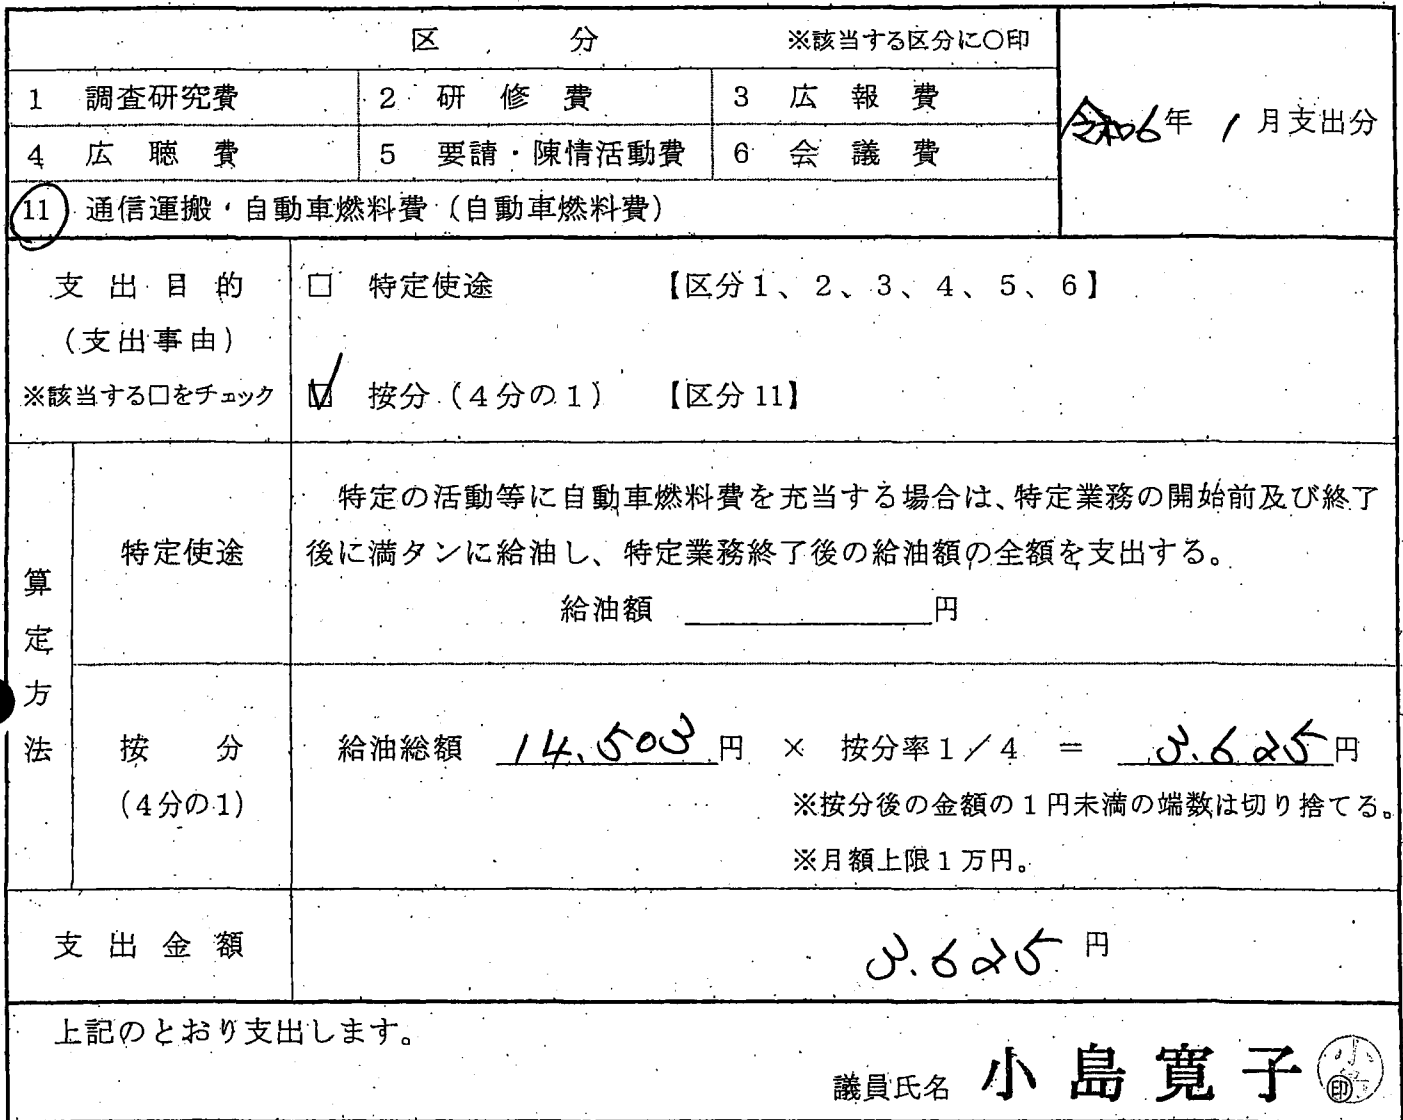 区 分 ※該当する区分に○印
令和6年 1月支出分
1 調査研究費 2 研修費 3 広報費
4 広聴費 5 要請・陳情活動費 6 会議費
11 通信運搬・自動車燃料費(自動車燃料費)
支出目的
(支出事由)
※該当する□をチェック
□ 特定使途 【区分1、2、3、4、5、6】
☑ 按分(4分の1) 【区分11】
算定方法
特定使途
特定の活動等に自動車燃料費を充当する場合は、特定業務の開始前及び終了
後に満タンに給油し、特定業務終了後の給油額の全額を支出する。
給油額 円
按分
(4分の1)
給油総額 14.503円 × 按分率1/4 = 3.625円
※按分後の金額の1円未満の端数は切り捨てる。
※月額上限1万円。
支出金額 3.625円
上記のとおり支出します。
議員氏名 小島寛子 印